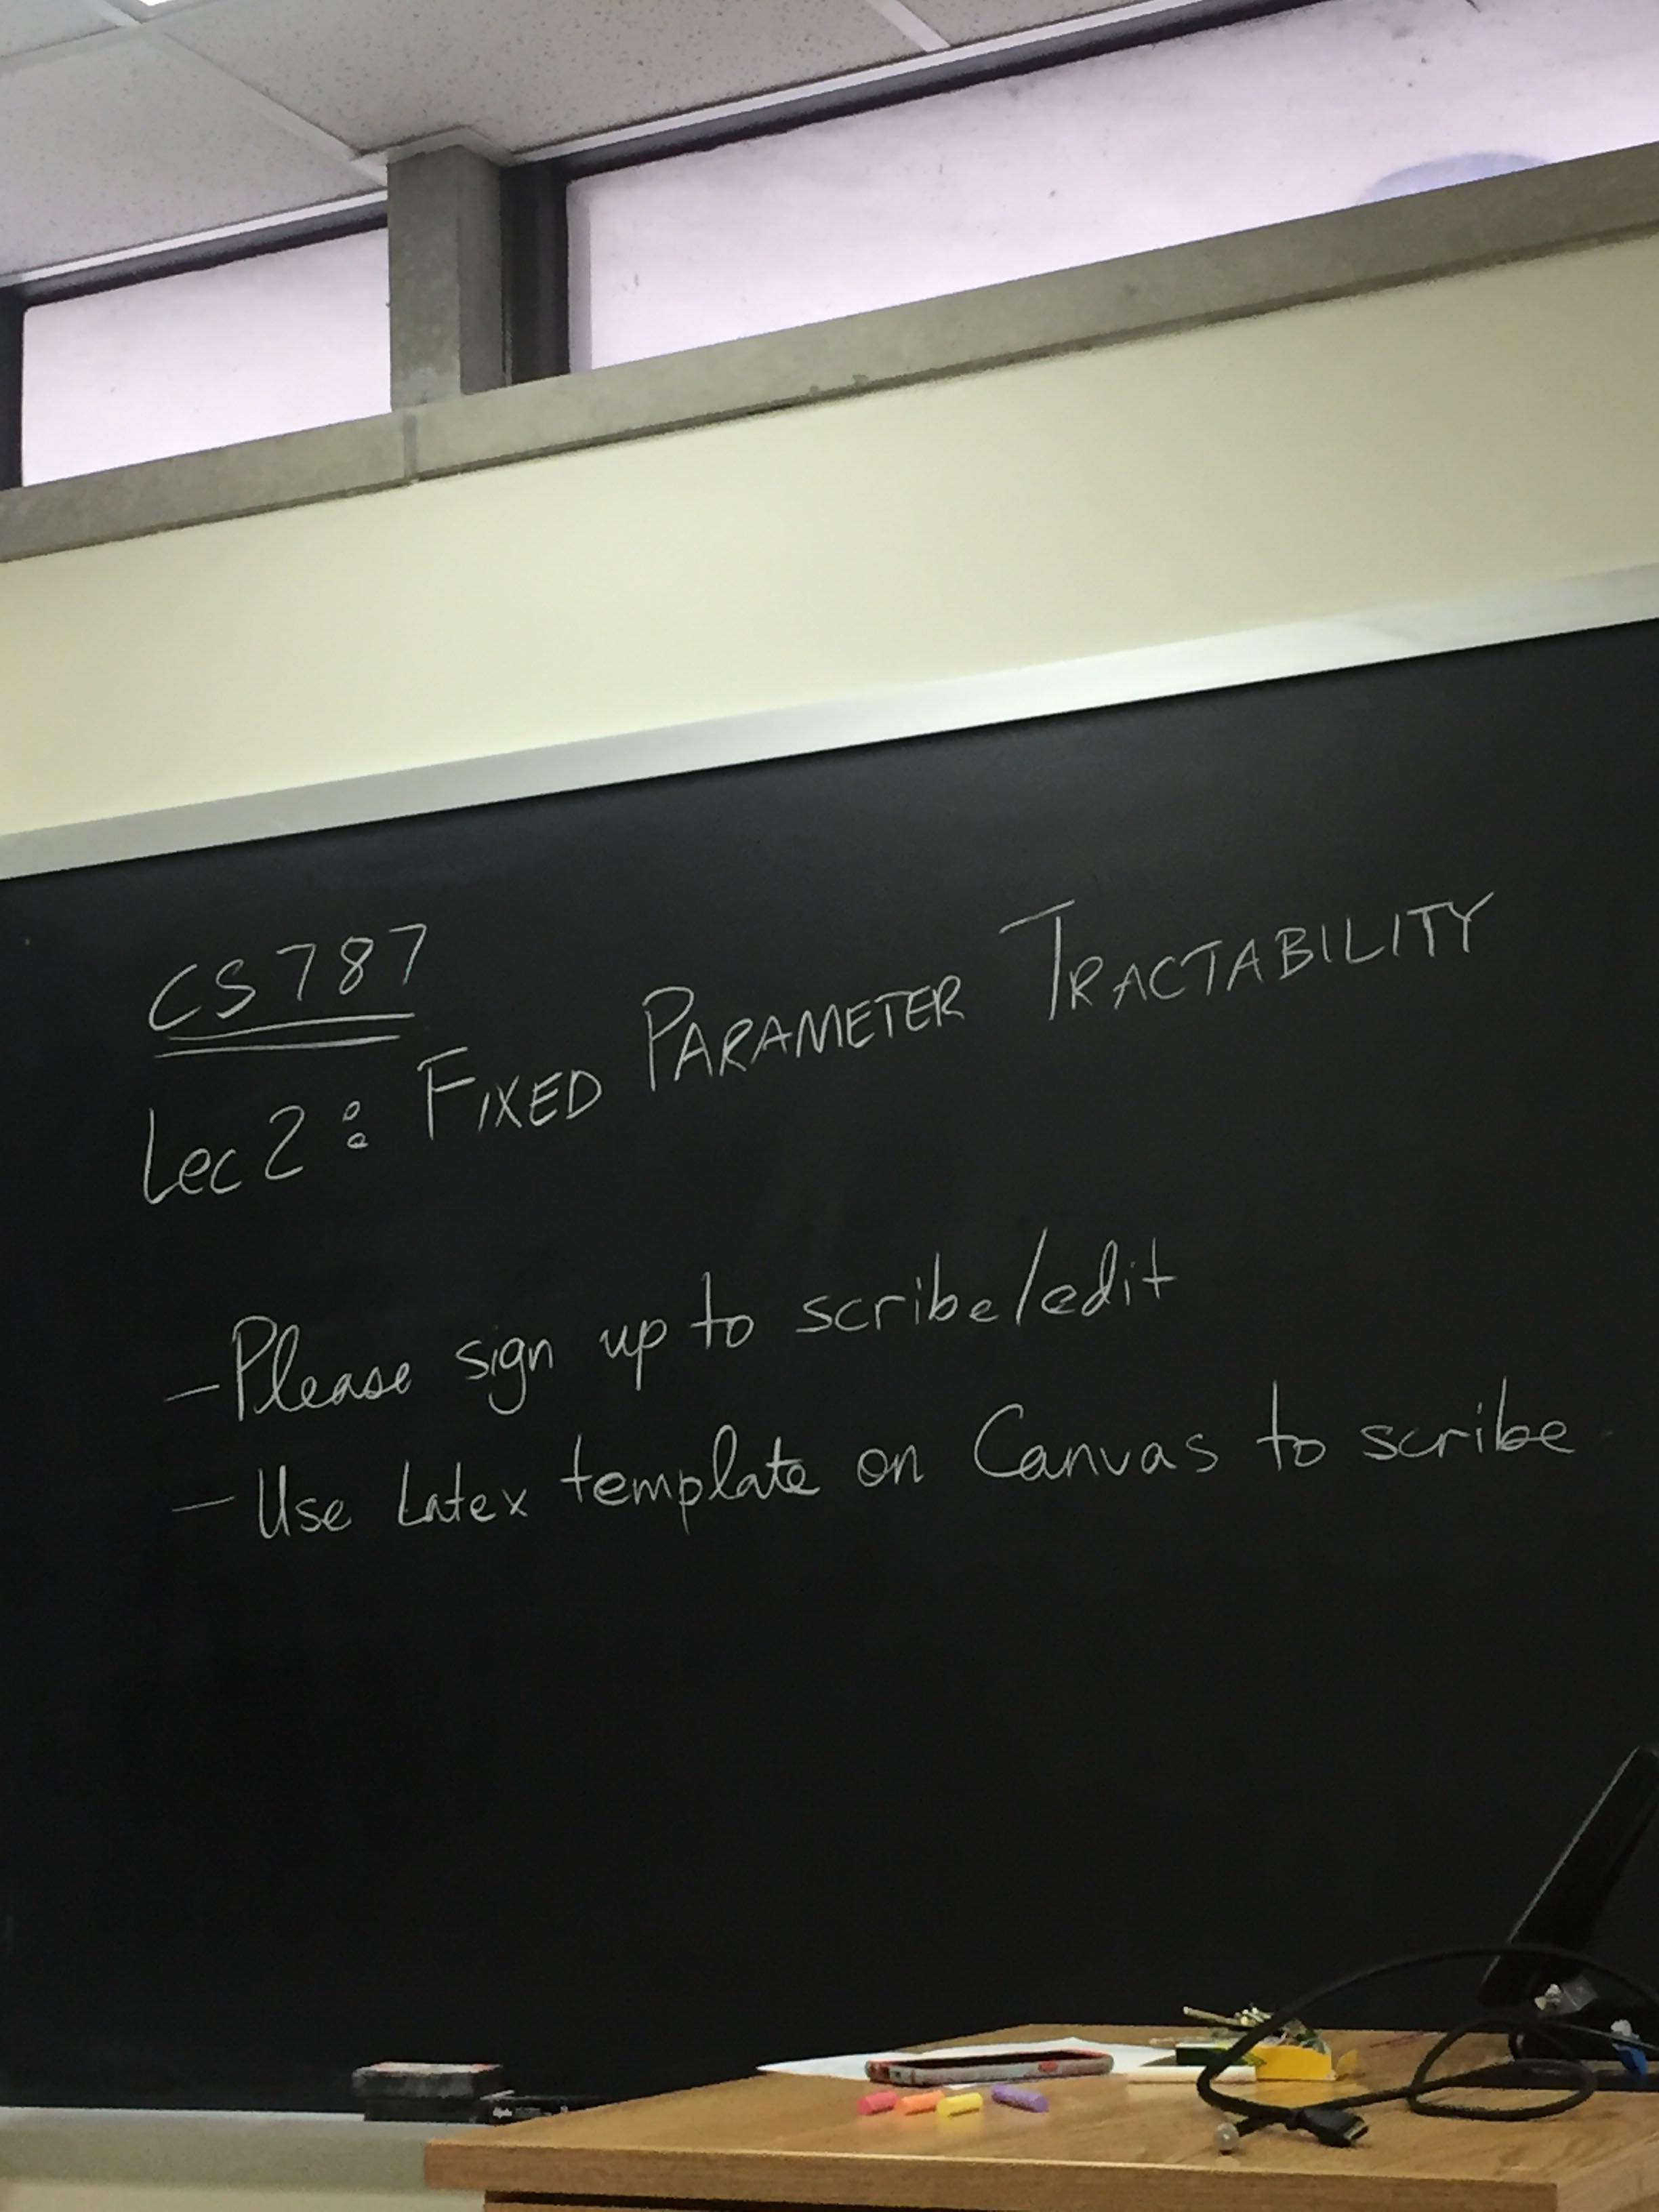 CS 787
Lec 2: FIXED PARAMETER TRACTABILITY
- Please sign up to scribe/edit
- Use Latex template on Canvas to scribe